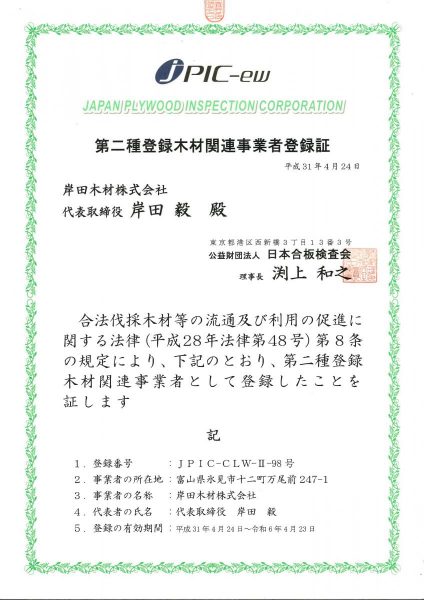 JPIC-ew
JAPAN PLYWOOD INSPECTION CORPORATION
第二種登録木材関連事業者登録証
平成31年4月24日
岸田木材株式会社
代表取締役 岸田 毅 殿
東京都港区西新橋3丁目13番3号
公益財団法人 日本合板検査会
理事長 渕上 和之
合法伐採木材等の流通及び利用の促進に
関する法律(平成28年法律第48号)第8条
の規定により、下記のとおり、第二種登録
木材関連事業者として登録したことを
証します
記
1．登録番号 ：JPIC-CLW-Ⅱ-98号
2．事業者の所在地：富山県氷見市十二町万尾前247-1
3．事業者の名称 ：岸田木材株式会社
4．代表者の氏名 ：代表取締役 岸田 毅
5．登録の有効期間：平成31年4月24日～令和6年4月23日